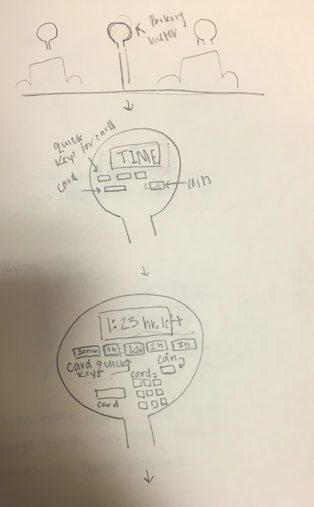 Parking
meter
quick
keys for card
TIME
card
coin
1:23 hr. left
30min 1h 1.5h 2h 3h
card quick
keys
coin
card
card